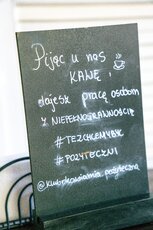 Pijąc u nas
KAWĘ!
dajesz pracę osobom
z NIEPEŁNOSPRAWNOŚCIĄ
#TEZCHCEMYBYĆ
#POŻYTECZNI
@klubokawiarnia_pozyteczna